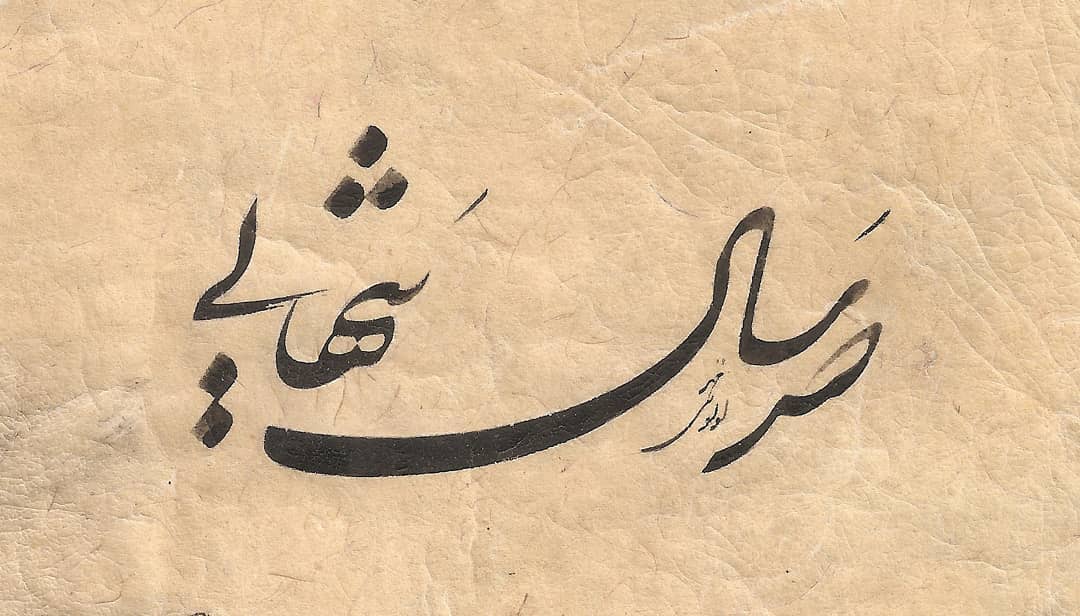 صَد سال تَنهایی